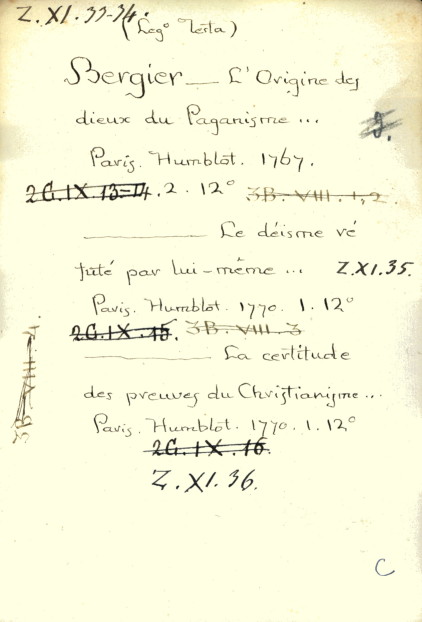 Z. XI. 33-34.
(Leg° Testa)
Bergier — L'Origine des
dieux du Paganisme ...
Paris. Humblot. 1767.
2G. IX. 13=14. 2. 12° 3B. VIII. 1, 2.
Le déisme ré
futé par lui-même ... Z. XI. 35.
Paris. Humblot. 1770. 1. 12°
2G. IX. 15. 3B. VIII. 3
La certitude
des preuves du Christianisme ...
Paris. Humblot. 1770. 1. 12°
2G. IX. 16.
Z. XI. 36.
3B. VIII. 4.
C